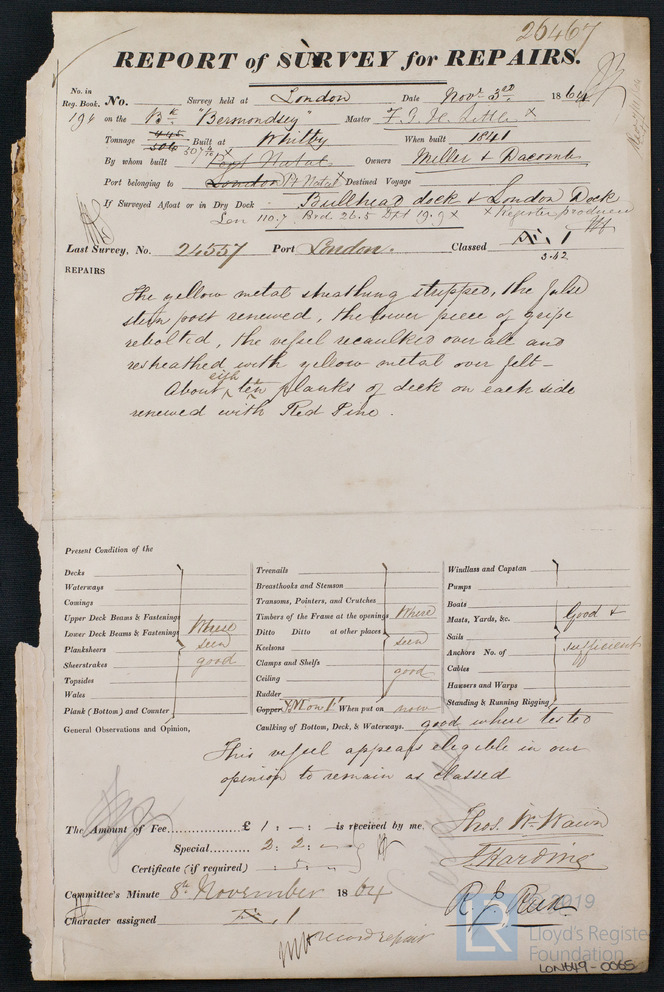 26467
REPORT of SURVEY for REPAIRS.
No. in Reg. Book. No. Survey held at London Date Novr. 3rd. 1864
194 on the Bk "Bermondsey" Master
Tonnage 445 506 Built at Whitby When built 1841
By whom built Port Natal Owners Miller & Dacomb
Port belonging to London Pt Natal x Destined Voyage
If Surveyed Afloat or in Dry Dock Bullhead dock & London Dock
Len 110.7 Brd 26.5 Dpt 19.9 x x Register produced
Last Survey, No. 24557 Port London. Classed 1
3.42
REPAIRS
The yellow metal sheathing stripped, the false
stern post renewed, the lower piece of gripe
rebolted, the vessel recaulked over all and
resheathed with yellow metal over felt -
About eigh ten planks of deck on each side
renewed with Red Pine.
Present Condition of the
Decks
Waterways
Comings
Upper Deck Beams & Fastenings
Lower Deck Beams & Fastenings
Plansheers
Sheerstrakes
Topsides
Wales
Plank (Bottom) and Counter
Where
seen
good
Treenails
Breasthooks and Stemson
Transoms, Pointers, and Crutches
Timbers of the Frame at the openings
Ditto Ditto at other places
Keelsons
Clamps and Shelfs
Ceiling
Rudder
Where
seen
good
Copper When put on now
Windlass and Capstan
Pumps
Boats
Masts, Yards, &c.
Sails
Anchors No. of
Cables
Hawsers and Warps
Standing & Running Rigging
Good &
sufficient
General Observations and Opinion, Caulking of Bottom, Deck, & Waterways. good where tested
This vessel appears eligible in our
opinion to remain as classed
The Amount of Fee £ 1 : - : - is received by me,
Special 2 : 2 : -
Certificate (if required) - 5 -
Thos. Wm. Wawn
J Harding
Committee's Minute 8th November 1864
Character assigned 1
record repair
© 2019
LR
Lloyd's Register
Foundation
LON649-0065